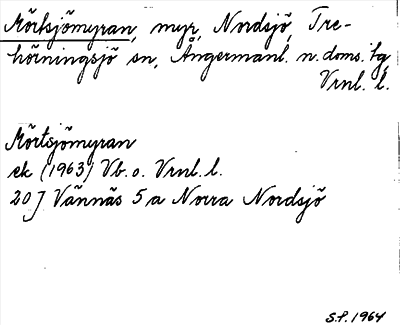 Mörtsjömyran, myr, Nordsjö, Tre-
hörningsjö sn, Ångermanl. n. doms. tg,
Vrnl. l.
Mörtsjömyran
ek (1963) Vb. o. Vrnl. l.
20 J Vännäs 5 a Norra Nordsjö
S.F. 1964